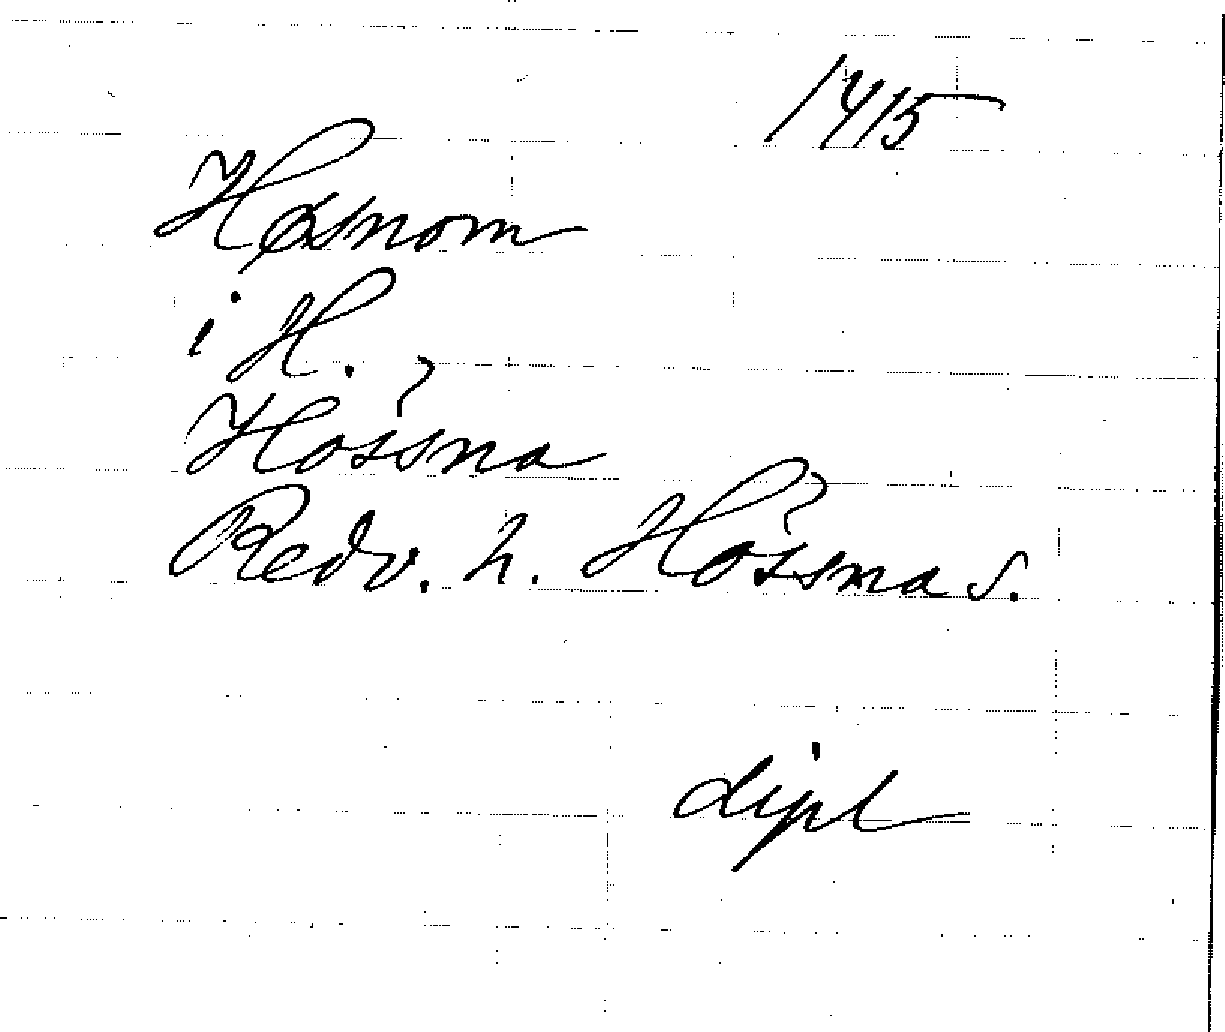 1415
Høsnom
i H.
Hössna
Redv. h. Hössna s.
dipl